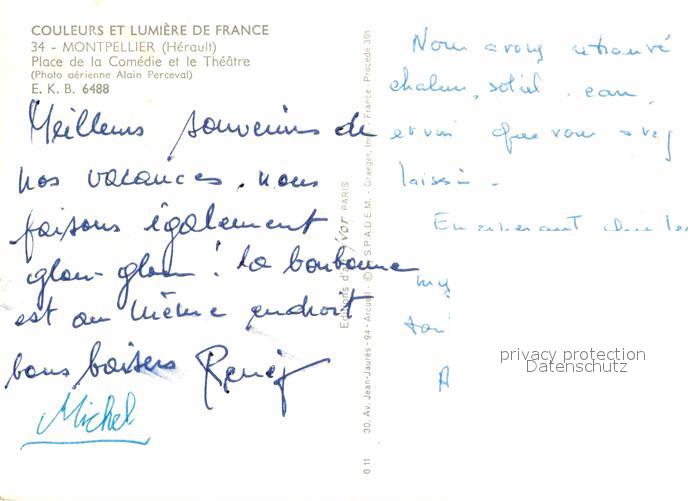 COULEURS ET LUMIÈRE DE FRANCE
34 - MONTPELLIER (Hérault)
Place de la Comédie et le Théâtre
(Photo aérienne Alain Perceval)
E. K. B. 6488
Meilleurs souvenirs de
nos vacances. nous
faisons également
glou-glou ! la bonbonne
est au même endroit
bons baisers Renée
Michel
Editions d'art Yvon PARIS
30, Av. Jean-Jaurès - 94 - Arcueil - © S.P.A.D.E.M. - Draeger, Imp., France - Procédé 301
0 11
Nous avons retrouvé
chaleur, soleil, eau,
et vin que vous avez
laissé.
En revenant chez les
my
privacy protection
Datenschutz
A